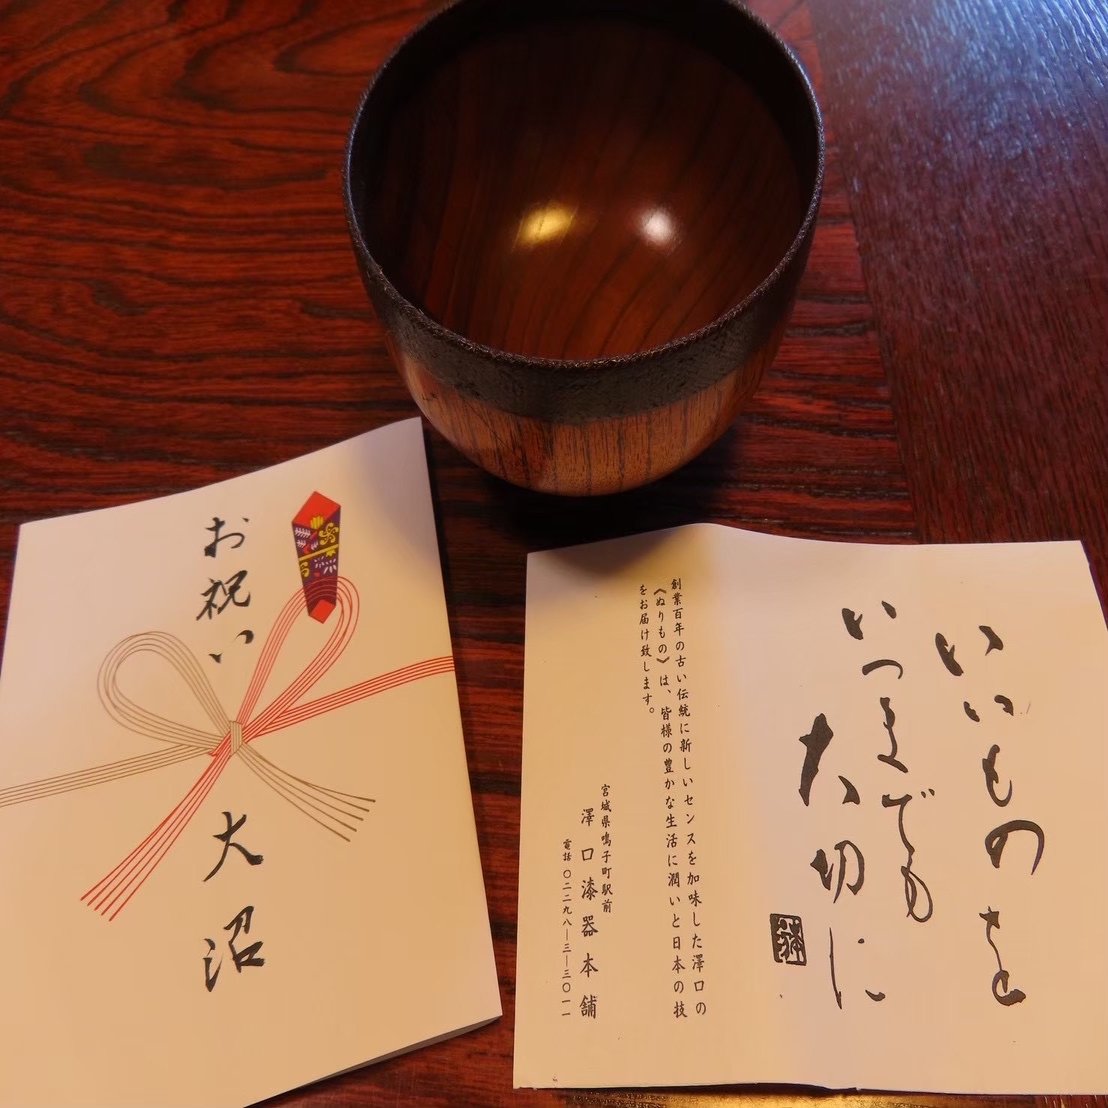 お祝い
大沼
いいものを
いつまでも
大切に
創業百年の古い伝統に新しいセンスを加味した澤口の
《ぬりもの》は、皆様の豊かな生活に潤いと日本の技
をお届け致します。
宮城県鳴子町駅前
澤口漆器本舗
電話〇二二九八―三―三〇一一